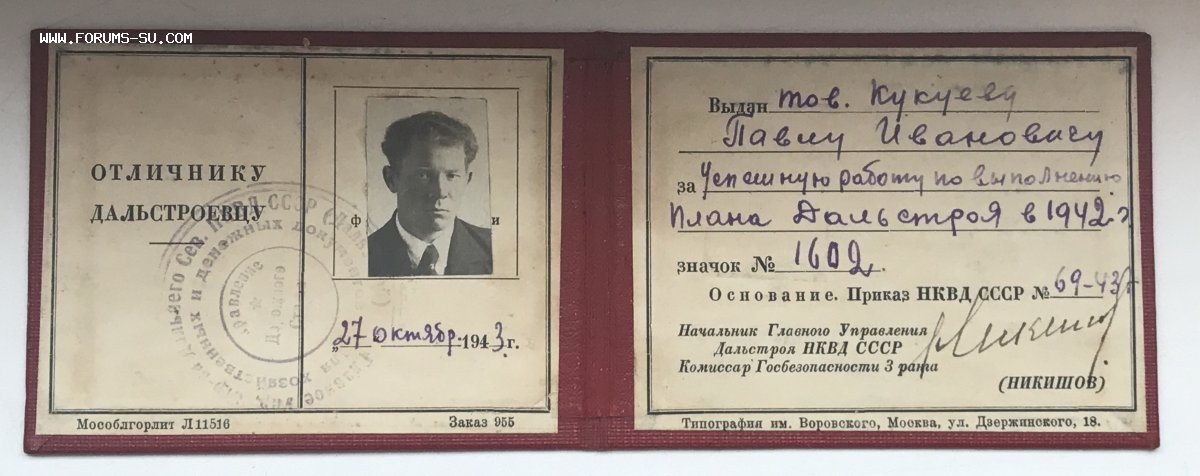 WWW.FORUMS-SU.COM
ОТЛИЧНИКУ
ДАЛЬСТРОЕВЦУ
Ф И
„27 октябр. 1943 г.
Мособлгорлит Л11516 Заказ 955
Выдан тов. Кукуеву
Павлу Ивановичу
за Успешную работу по выполнению
плана Дальстроя в 1942 г
значок № 1602.
Основание. Приказ НКВД СССР № 69-43г
Начальник Главного Управления
Дальстроя НКВД СССР
Комиссар Госбезопасности 3 ранга
(НИКИШОВ)
Типография им. Воровского, Москва, ул. Дзержинского, 18.